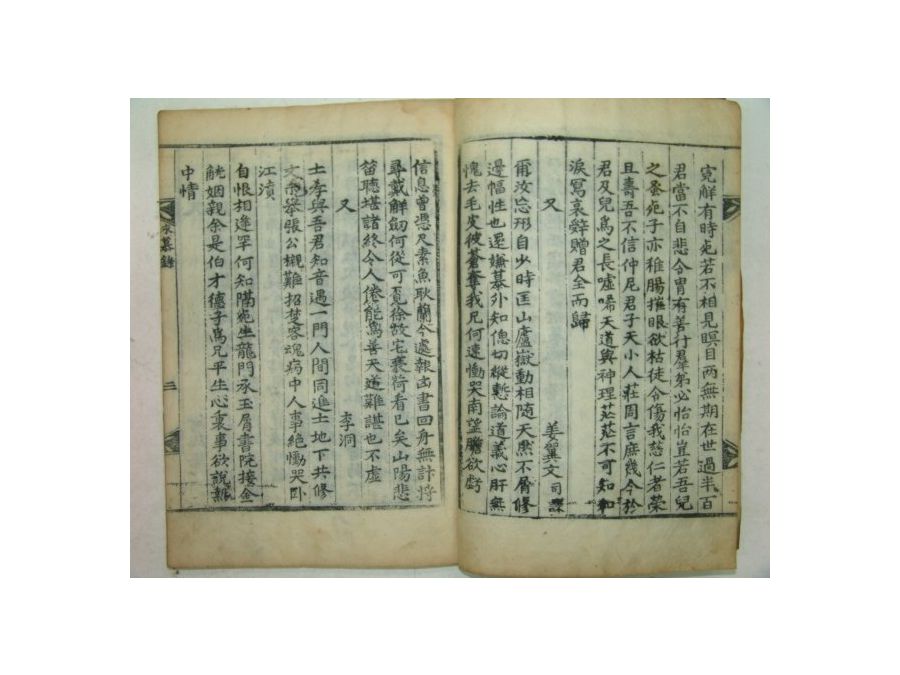 寃觧有時矣若不相見瞑目两無期在世過半百
君當不自悲令胄有善行羣弟必怡怡豈若吾兒
之夭死子亦稚腸摧眼欲枯徒令傷我慈仁者榮
且壽吾不信仲尼君子天小人莊周言庶幾今於
君及兒爲之長噓唏天道與神理茫茫不可知和
淚寫哀辤贈君全而歸
又 姜翼文 司諜
爾汝忘形自少時匡山廬嶽動相隨天然不屑修
邊幅性也還嫌棊外知偲切縱慙論道義心肝無
愧去毛皮彼蒼奪我兄何速慟哭南望膽欲虧
信息曾憑尺素魚耿蘭今遽報凶書回舟無計捋
尋戴觧劒何從可覔徐故宅裹荷看已矣山陽悲
笛聴堪諸終令人倦能爲善天道難諶也不虛
又 李洞
士孝與吾君知音遇一門人間同進土地下共修
文舉張公櫬難招楚客魂病中人事絶慟哭卧
江濆
自恨相逢罕何知滿死坐龍門承玉屑書院接金
觥姻親余是伯才德子爲兄平生心裏事欲說報
中情
永慕錄
三